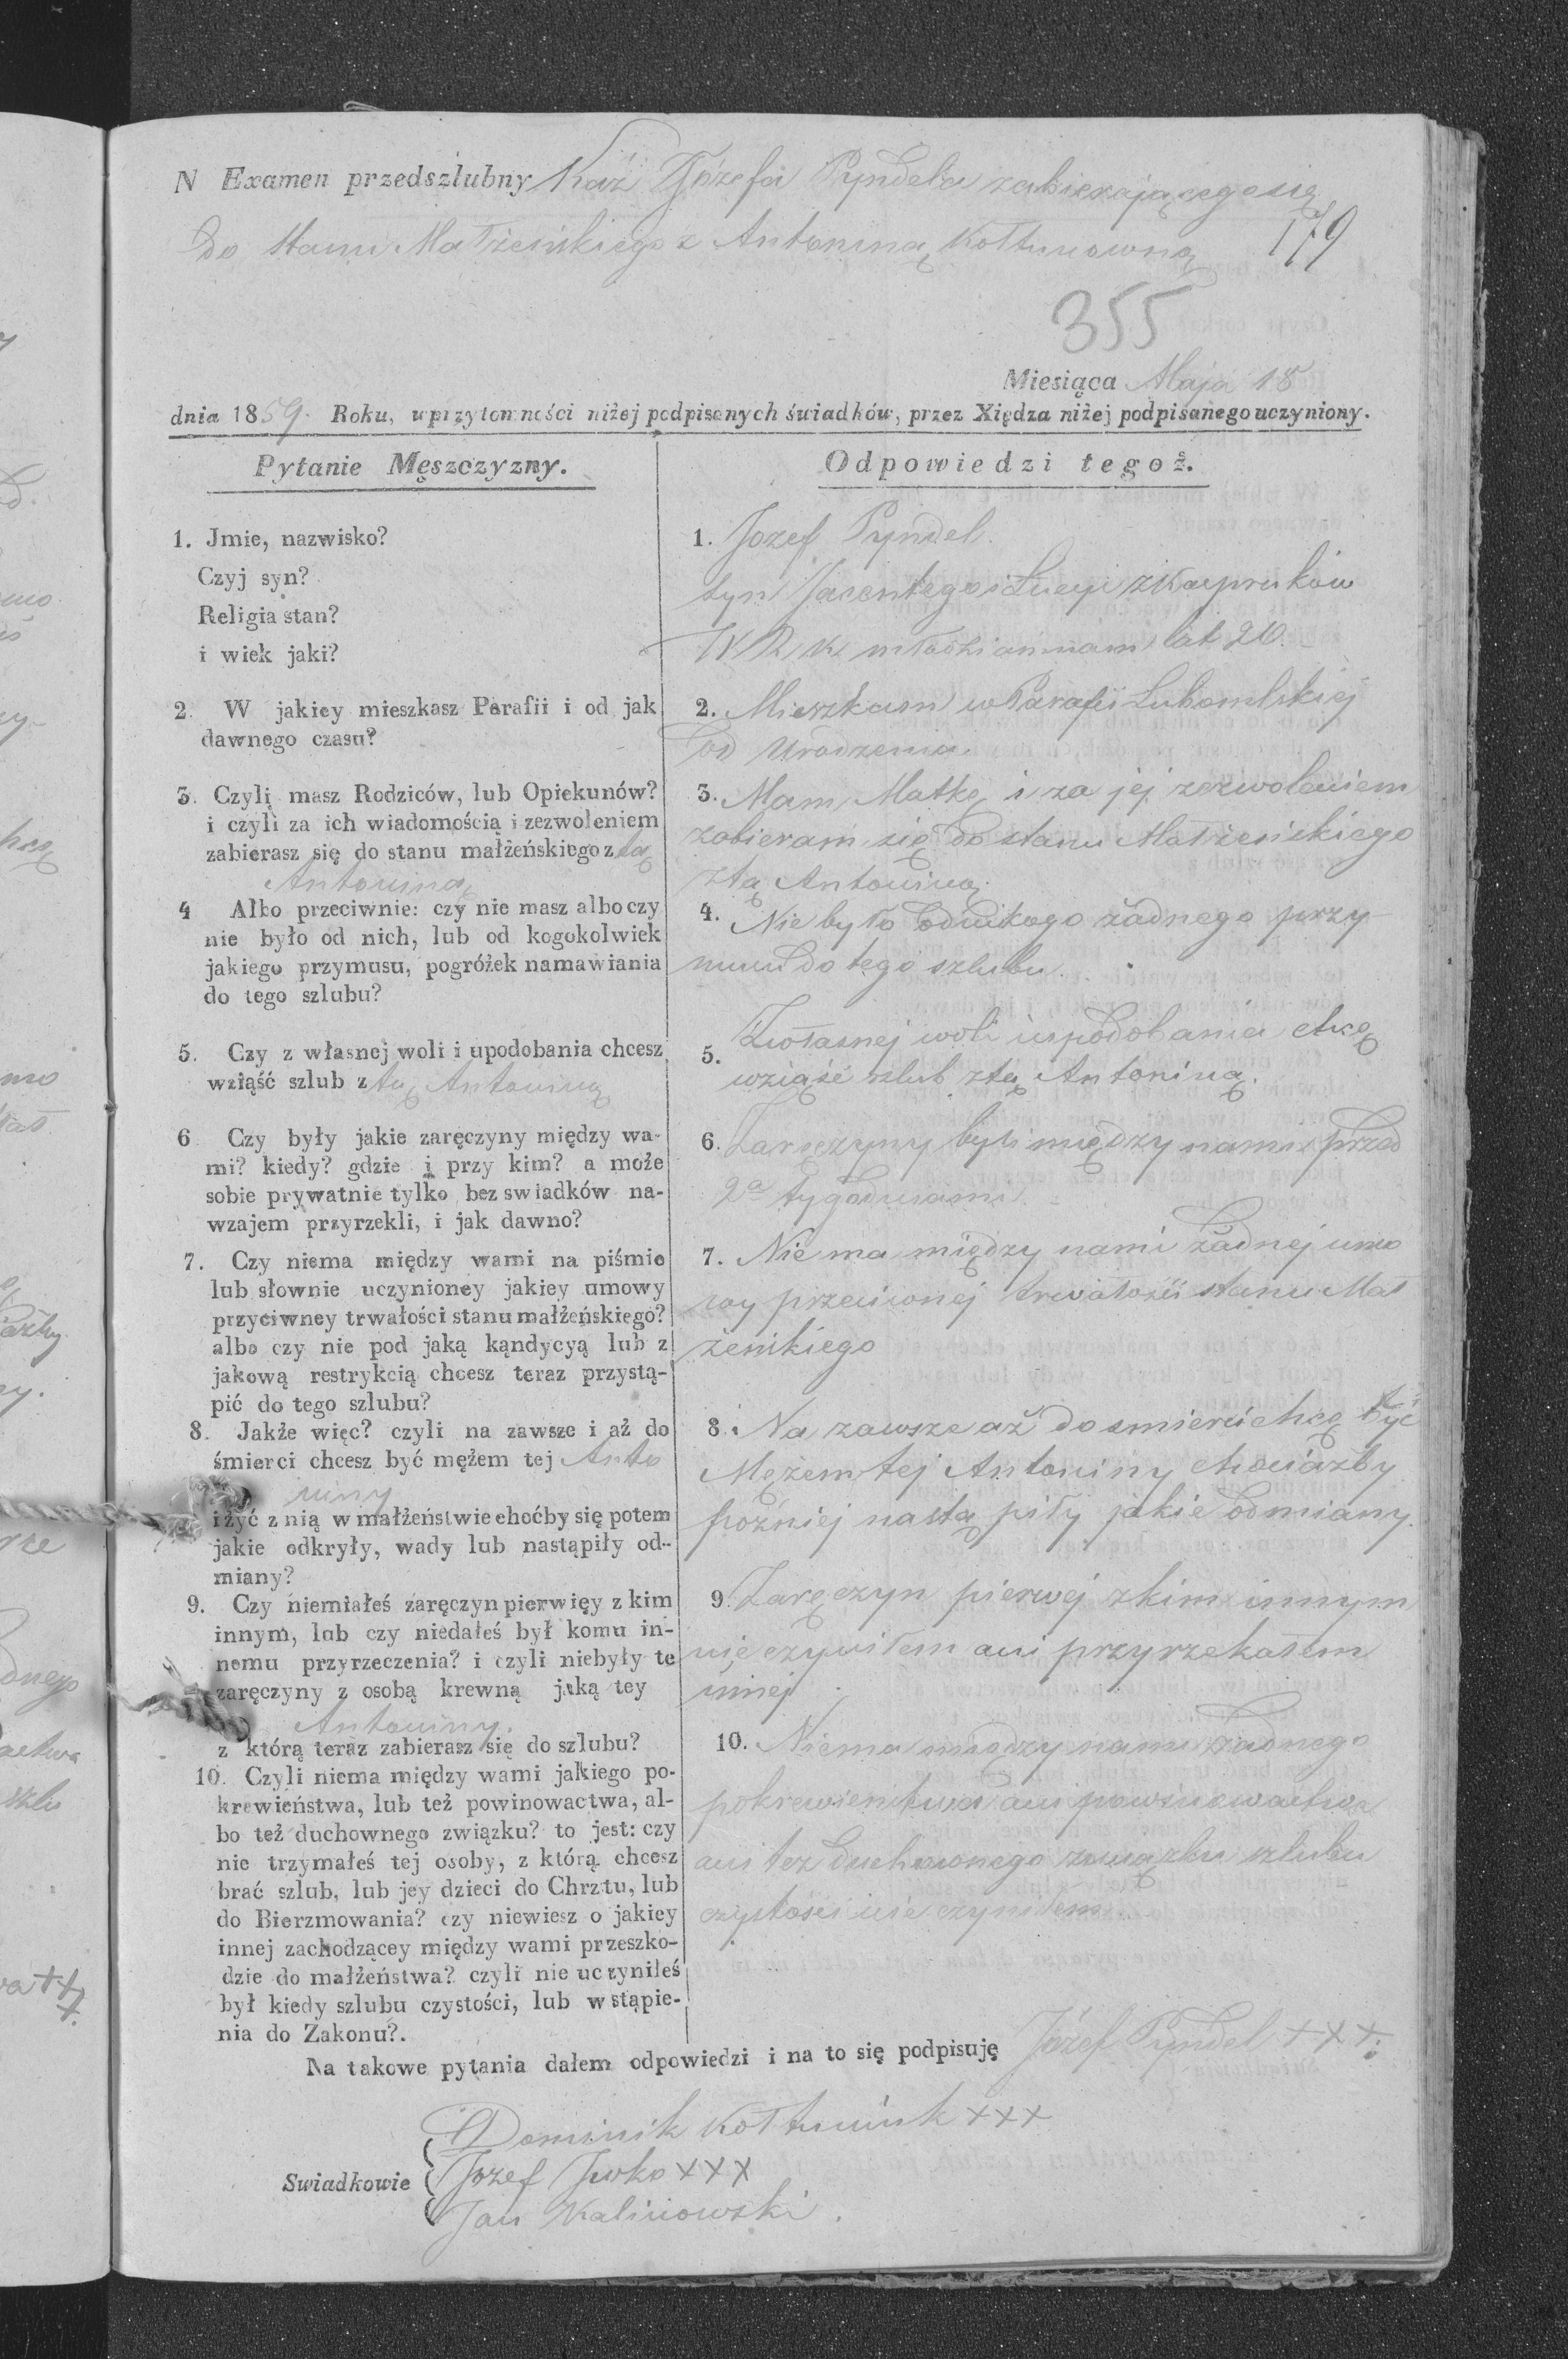 N Examen przedszlubny Józefa Pyndela zabierającego się
do stanu Małżeńskiego z Antoniną Kołtunowną
179
355
Miesiąca Maja 18
dnia 1859. Roku, w przytomności niżej podpisanych świadków, przez Xiędza niżej podpisanego uczyniony.
Pytanie Męszczyzny.
1. Jmie, nazwisko?
Czyj syn?
Religia stan?
i wiek jaki?
2. W jakiey mieszkasz Parafii i od jak
dawnego czasu?
3. Czyli masz Rodziców, lub Opiekunów?
i czyli za ich wiadomością i zezwoleniem
zabierasz się do stanu małżeńskiego z tą
Antoniną
4 Albo przeciwnie: czy nie masz albo czy
nie było od nich, lub od kogokolwiek
jakiego przymusu, pogróżek namawiania
do tego szlubu?
5. Czy z własnej woli i upodobania chcesz
wziąść szlub z tą Antoniną
6 Czy były jakie zaręczyny między wa-
mi? kiedy? gdzie i przy kim? a może
sobie prywatnie tylko bez swiadków na-
wzajem przyrzekli, i jak dawno?
7. Czy niema między wami na piśmie
lub słownie uczynioney jakiey umowy
przyciwney trwałości stanu małżeńskiego?
albo czy nie pod jaką kąndycyą lub z
jakową restrykcią chcesz teraz przystą-
pić do tego szlubu?
8. Jakże więc? czyli na zawsze i aż do
śmierci chcesz być mężem tej Anto
niny
i żyć z nią w małżeństwie choćby się potem
jakie odkryły, wady lub nastąpiły od-
miany?
9. Czy niemiałeś zaręczyn pierwięy z kim
innym, lub czy niedałeś był komu in-
nemu przyrzeczenia? i czyli niebyły te
zaręczyny z osobą krewną jaką tey
Antoniny.
z którą teraz zabierasz się do szlubu?
10. Czyli niema między wami jakiego po-
krewieństwa, lub też powinowactwa, al-
bo też duchownego związku? to jest: czy
nie trzymałeś tej osoby, z którą chcesz
brać szlub, lub jey dzieci do Chrztu, lub
do Bierzmowania? czy niewiesz o jakiey
innej zachodzącey między wami przeszko-
dzie do małżeństwa? czyli nie uczyniłeś
był kiedy szlubu czystości, lub wstąpie-
nia do Zakonu?.
Odpowiedzi tegoż.
1. Jozef Pyndel.
syn Jacentego i Łucyi z Karpruków
W R K młodzian mam lat 20.
2. Mieszkam w Parafii Lubomlskiej
od urodzenia.
3. Mam Matkę i za jej zezwoleniem
zabieram się do stanu Małżeńskiego
z tą Antoniną.
4. Nie było od nikogo żadnego przy-
musu do tego szlubu.
5. Z własnej woli i upodobania chcę
wziąść szlub z tą Antoniną.
6. Zaręczyny byli między nami przed
2a tygodniami.
7. Nie ma między nami żadnej umo
wy przeciwnej trwałości stanu Mał
żeńskiego
8. Na zawsze aż do smierci chcę być
Mężem tej Antoniny chociażby
później nastąpiły jakie odmiany.
9. Zaręczyn pierwej z kim innym
nie czyniłem ani przyrzekałem
innej
10. Niema między nami żadnego
pokrewienstwa ani powinowactwa
ani tez duchownego związku szlubu
czystości nie czyniłem
Na takowe pytania dałem odpowiedzi i na to się podpisuję Józef Pyndel +++.
Dominik Kołtuniuk +++
Swiadkowie Jozef Jwko +++
Jan Kalinowski.